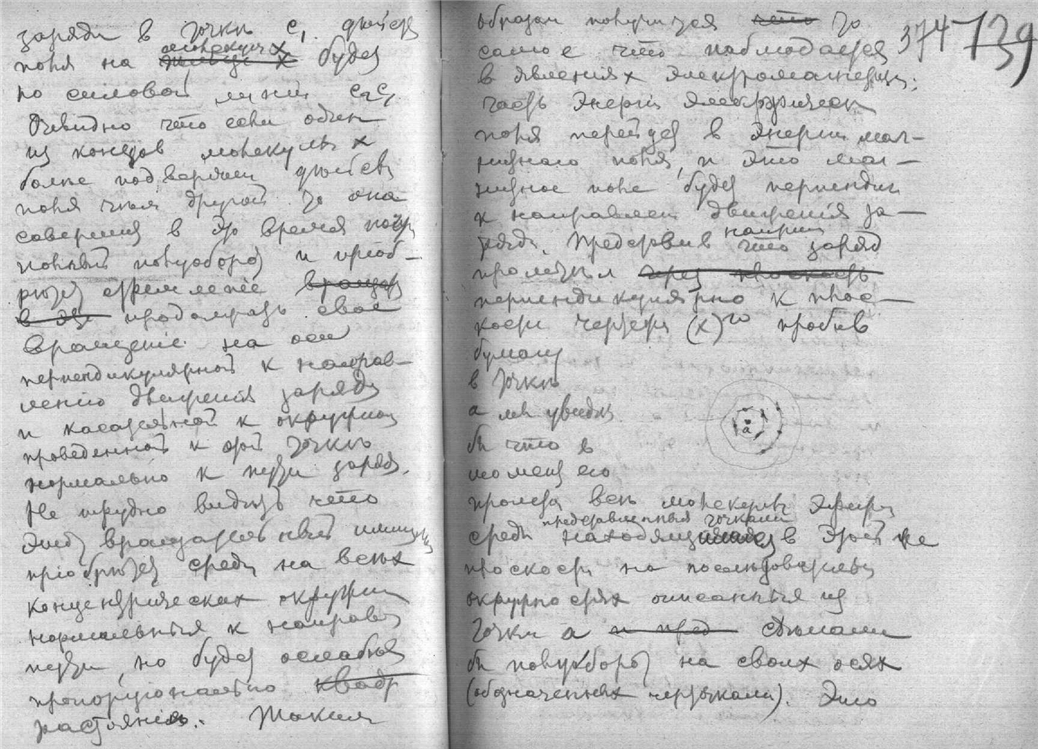 заряди в точки С₁. дѣйств
поля на молекулы х будет
по силовой линии
Очевидно что если один
из концов молекулы х
более подвержен дѣйств
поля чем другой то она
совершит в это время
полный полуоборот и приоб-
рѣтет стремленіе вращат
в эт продолжать свое
вращение на оси
перпендикулярной к направ-
лению движения заряда
и касательной к окружно
проведенной к этой точки
нормально к пути заряда.
Не трудно видѣть что
этот вращательный импульс
приобрѣтет среди на всѣх
концентрических окружн
нормальных к направ
пути, но будет ослабл
пропорционально квадр
расстояния. Таким
374 739
образом получится что то
самое что наблюдается
в явлениях электромагнетизм:
часть энергии электрическ
поля перейдет в энергии маг-
нитного поля, и это маг-
нитное поле будет перпендик
к направлен движения за-
ряда. Представив что наприм заряд
пролетѣл через плоскость
перпендикулярно к плос-
кости чертежа (х)го пробив
бумагу
в точки
а мы увидѣл
бы что в
момент его
пролета всѣ молекулы эфирн
среди представленныя точками находящ в этой же
плоскости на послѣдовательн
окружностях описанных из
точки а и пред сдѣлали
бы полуоборот на своих осях
(обозначенных черточками). Это
а